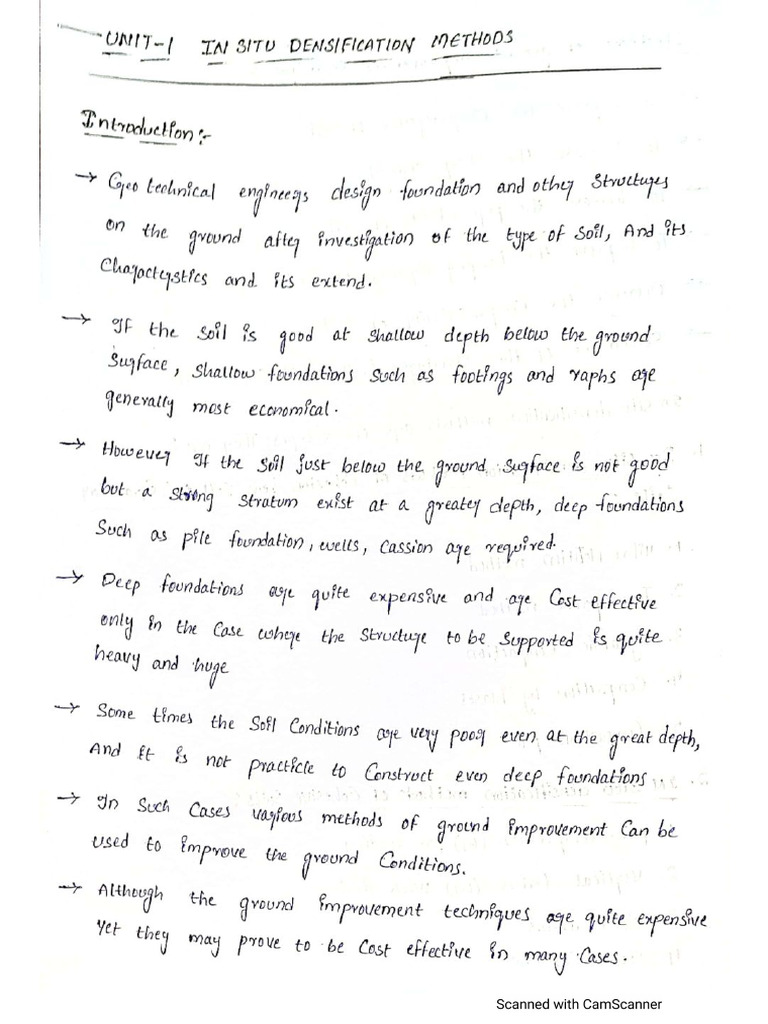 UNIT-1 IN SITU DENSIFICATION METHODS
Introduction:-
→ Geo technical engineers design foundation and other structures
on the ground after investigation of the type of soil, And its
Characterstics and its extend.
→ If the soil is good at shallow depth below the ground
surface, shallow foundations such as footings and raphs are
generally most economical.
→ However if the soil just below the ground surface is not good
but a strong stratum exist at a greater depth, deep foundations
Such as pile foundation, wells, cassion are required.
→ Deep foundations are quite expensive and are cost effective
only in the case where the structure to be supported is quite
heavy and huge
→ Some times the soil conditions are very poor even at the great depth,
And it is not practicle to construct even deep foundations
→ In such cases various methods of ground improvement can be
used to improve the ground conditions.
→ Although the ground improvement techniques are quite expensive
yet they may prove to be cost effective in many cases.
Scanned with CamScanner